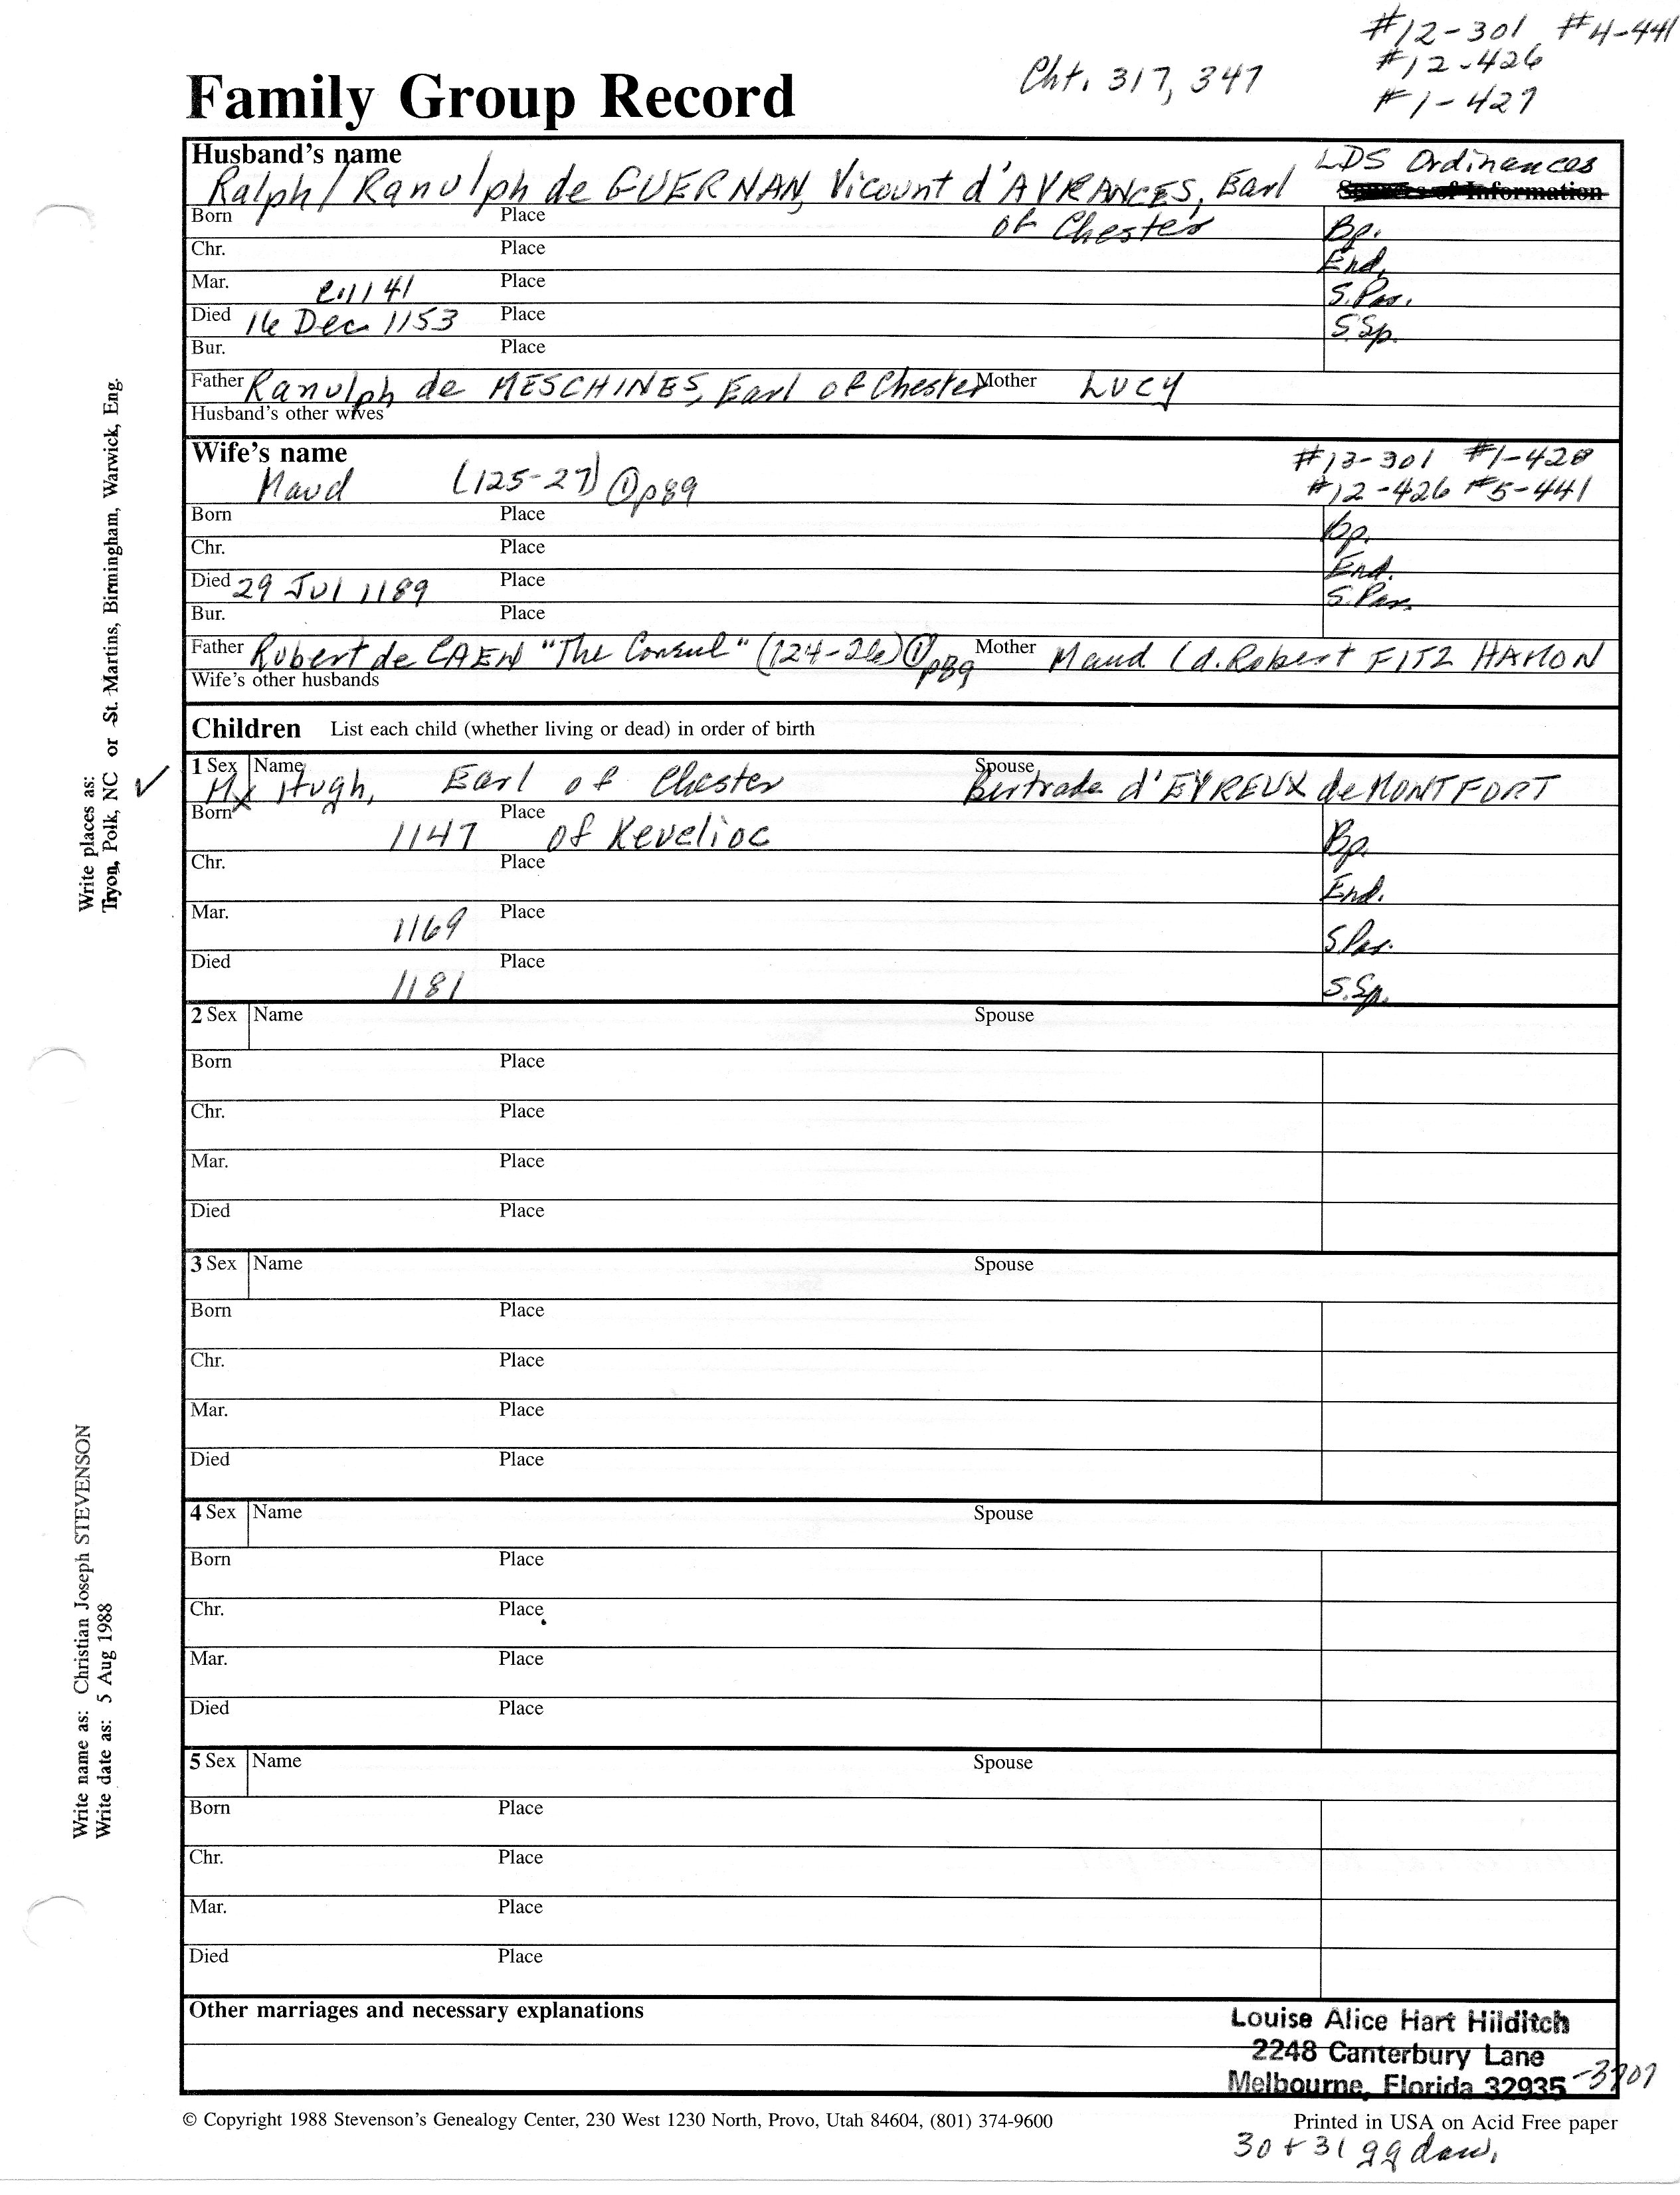 #12-301 #4-441
#12-426
#1-427
Cht. 317, 347
Family Group Record
Husband's name
Ralph/Ranulph de GUERNAN, Vicount d'AVRANCES, Earl
of Chester
LDS Ordinances
Sources of Information
Born Place Bp.
Chr. Place End.
Mar. c.1141 Place S.Par.
Died 16 Dec 1153 Place S.Sp.
Bur. Place
Father Ranulph de MESCHINES, Earl of Chester Mother LUCY
Husband's other wives
Wife's name
Maud (125-27) ① p89
#13-301 #1-428
#12-426 #5-441
Born Place Bp.
Chr. Place End.
Died 29 Jul 1189 Place S.Par.
Bur. Place
Father Robert de CAEN "The Consul" (124-26) ① p89 Mother Maud (d. Robert FITZ HAMON
Wife's other husbands
Children List each child (whether living or dead) in order of birth
1 Sex M Name Hugh, Earl of Chester Spouse Bertrade d'EVREUX de MONTFORT
Born 1147 Place of Kevelioc Bp.
Chr. Place End.
Mar. 1169 Place S.Par.
Died 1181 Place S.Sp.
2 Sex Name Spouse
Born Place
Chr. Place
Mar. Place
Died Place
3 Sex Name Spouse
Born Place
Chr. Place
Mar. Place
Died Place
4 Sex Name Spouse
Born Place
Chr. Place
Mar. Place
Died Place
5 Sex Name Spouse
Born Place
Chr. Place
Mar. Place
Died Place
Other marriages and necessary explanations
Louise Alice Hart Hilditch
2248 Canterbury Lane
Melbourne, Florida 32935
© Copyright 1988 Stevenson's Genealogy Center, 230 West 1230 North, Provo, Utah 84604, (801) 374-9600
Printed in USA on Acid Free paper
30 + 31 gg dau.
Write places as:
Tryon, Polk, NC or St. Martins, Birmingham, Warwick, Eng.
Write name as: Christian Joseph STEVENSON
Write date as: 5 Aug 1988